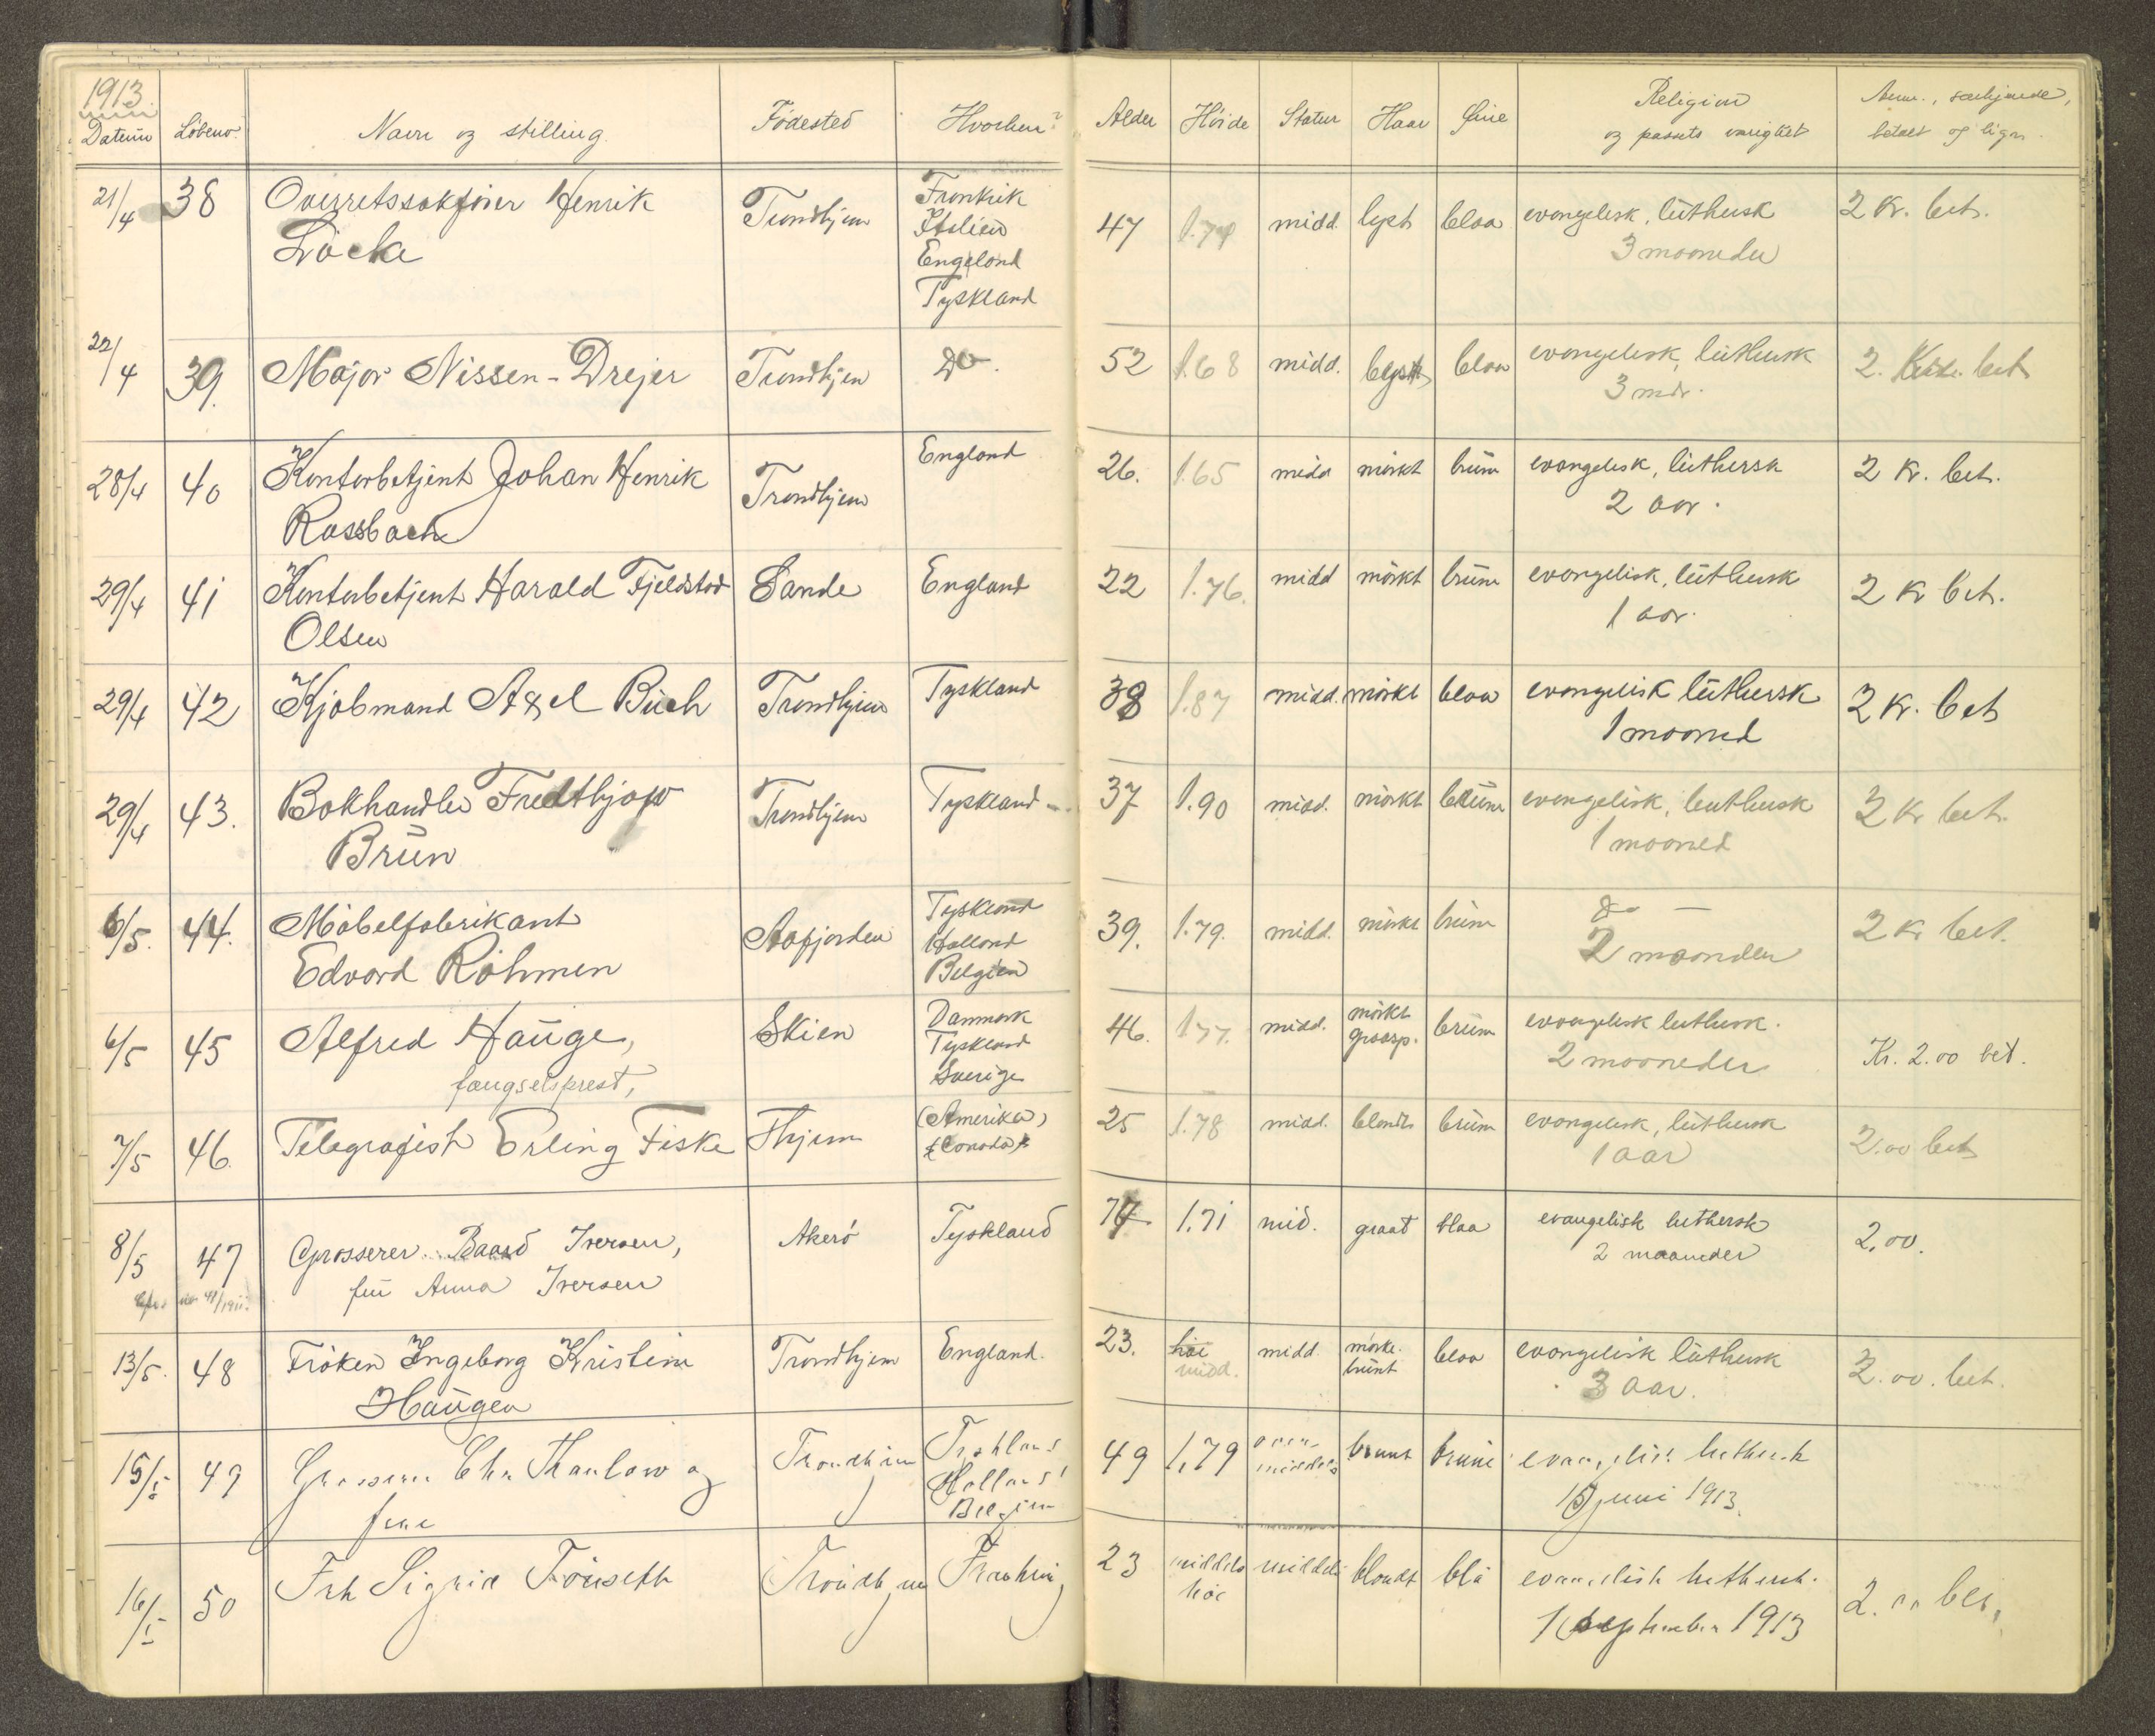 1913
Datum Löbeno Navn og stilling. Födested Hvorhen? Alder Höide Statur Haar Öine Religion og passets varighet Anm., særkjende, betalt og lign.
21/4 38 Overretssakförer Henrik Trondhjem Frankrik 47 1.74 midd. lyst blaa evangelisk, luthersk 2 Kr. bet.
Löcke Italien 3 maaneder
England
Tyskland
22/4 39. Major Nissen-Drejer Trondhjem Do. 52 1.68 midd. lyst blaa evangelisk, luthersk 2. bet
3 mdr.
28/4 40 Kontorbetjent Johan Henrik Trondhjem England 26. 1.65 midd mörkt brun evangelisk, luthersk 2 Kr. bet.
Rossbach 2 aar.
29/4 41 Kontorbetjent Harald Fjeldstad Sande England 22 1.76. midd mörkt brun evangelisk, luthersk 2 Kr bet.
Olsen 1 aar.
29/4 42 Kjöbmand Axel Buch Trondhjem Tyskland 38 1.87 midd. mörkt blaa evangelisk luthersk 2 Kr. bet
1 maaned
29/4 43. Bokhandler Fredthjof Trondhjem Tyskland 37 1.90 midd. mörkt brun evangelisk, luthersk 2 Kr bet.
Brun 1 maaned
6/5. 44. Möbelfabrikant Aafjorden Tyskland 39. 1.79. midd. mörkt brun do — 2 Kr bet.
Edvard Röhmen Holland 2 maander
Belgien
6/5 45 Alfred Hauge, Skien Danmark 46. 1.77. midd. mörkt graasp. brun evangelisk luthersk. Kr. 2.00 bet.
fængselsprest, Tyskland 2 maaneder
Sverige
7/5 46. Telegrafist Erling Fiske Thjem (Amerika) 25 1.78 midd. blondt brun evangelisk, luthersk 2.00 bet
(Canada) 1 aar
8/5 47 Grosserer Baard Iversen, Akerö Tyskland 74 1.71 mid. graat blaa evangelisk luthersk 2.00.
fru Anna Iversen 2 maaneder
13/5. 48 Fröken Ingeborg Kristine Trondhjem England. 23. höi midd. midd. mörke. brunt blaa evangelisk luthersk 2.00. bet.
Haugen 3 aar.
15/5 49 Grosserer Chr Thaulow og Trondhjem Tyskland 49 1.79 over middels brunt brune evangelisk luthersk
frue Holland 15 juni 1913.
Belgien
16/5 50 Frk Sigrid Fönseth Trondhjem Frankrig 23 middels höi middels blondt blå evangelisk luthersk. 2.00 bet.
1 september 1913